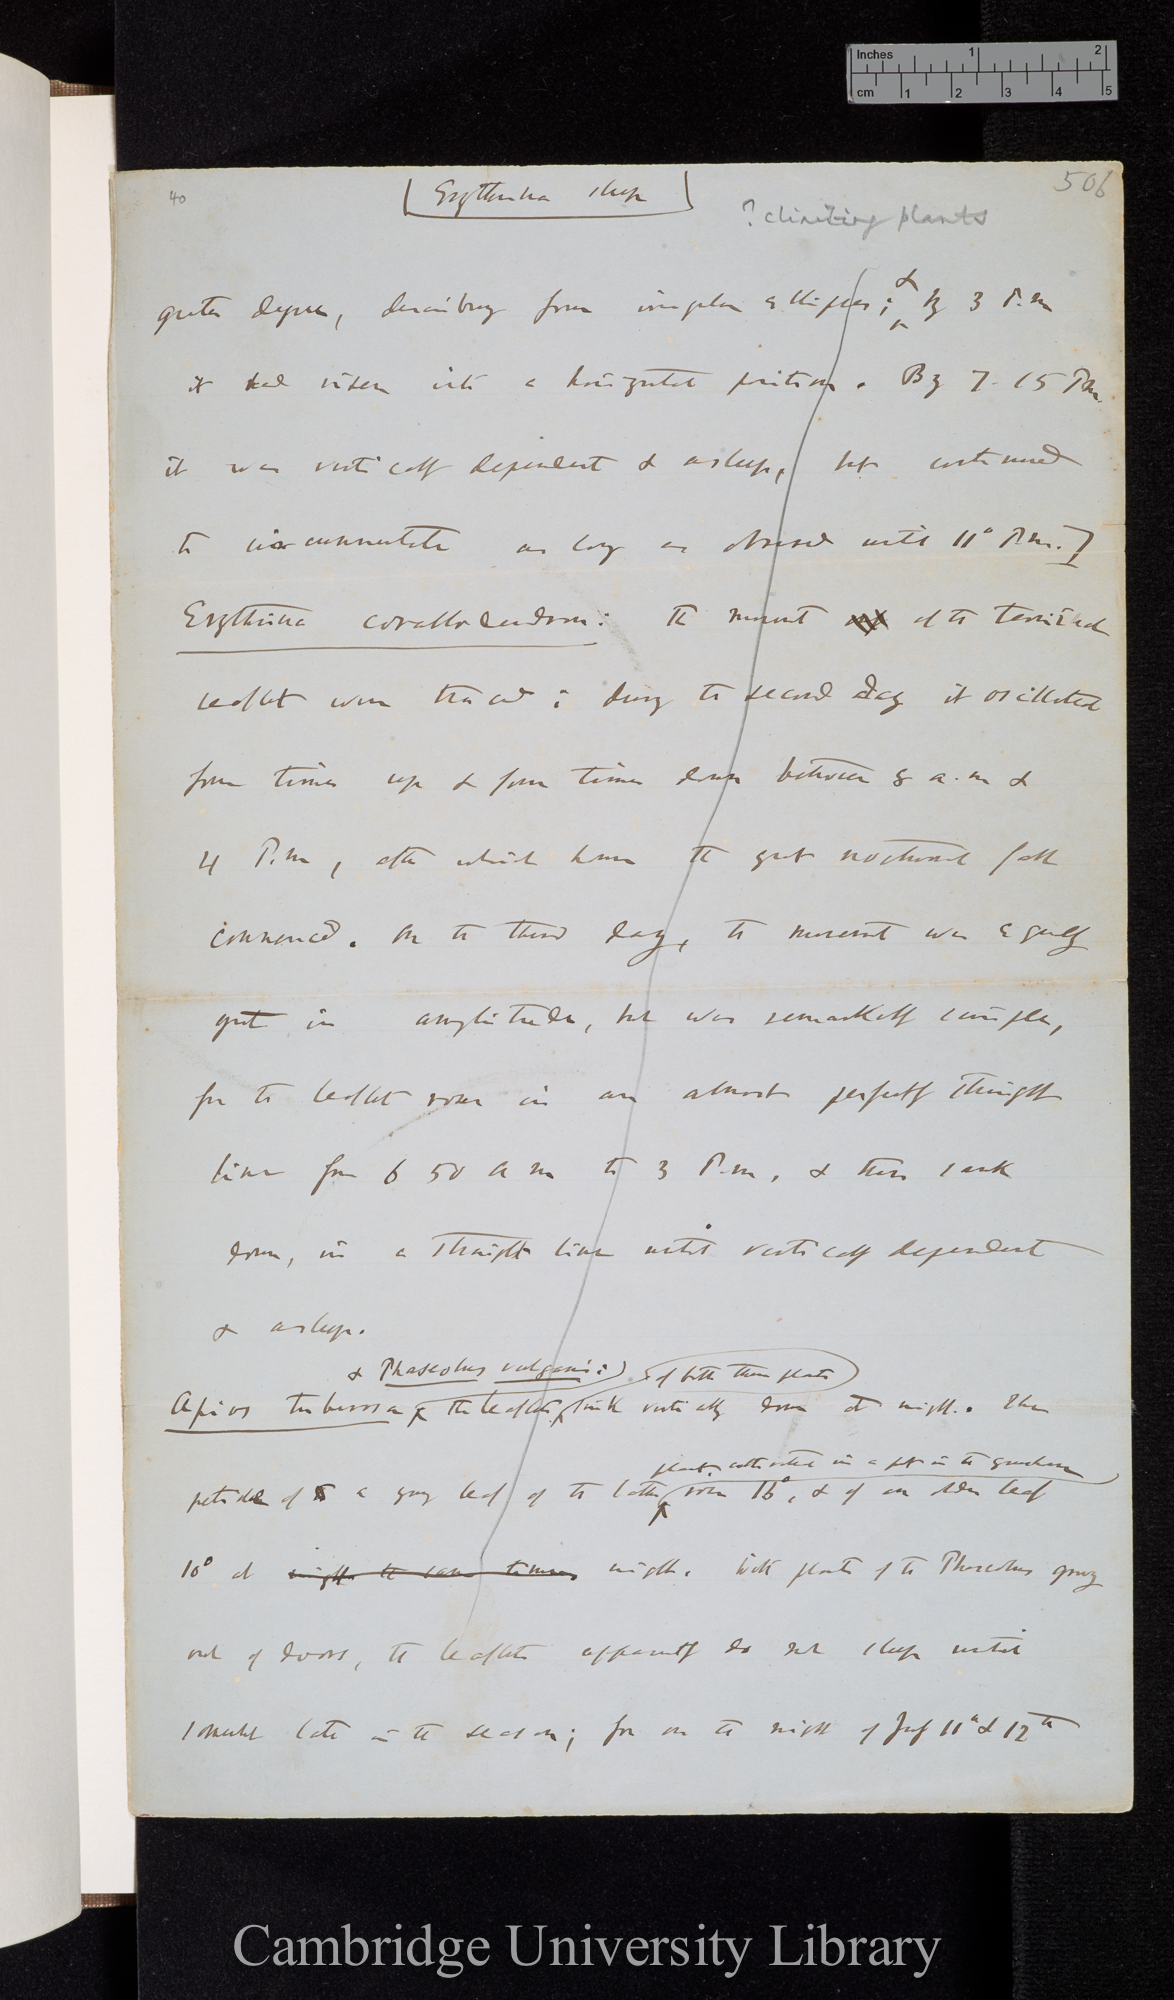 Inches 1 2
cm 1 2 3 4 5
40
[Erythrina sleep]
506
? climbing plants
greater degree, describing four irregular ellipses; & by 3 P.m
it had risen into a horizontal position. By 7. 15 P.m.
it was vertically dependent & asleep, but continued
to circumnutate as long as observed until 11° P.m.]
Erythrina corallodendron: The movement of the terminal
leaflet were traced; during the second day it oscillated
four times up & four times down between 8 a.m &
4 P.m, after which hour the great nocturnal fall
commenced. On the third day, the movement was equally
great in amplitude, but was remarkably simple,
for the leaflet rose in an almost perfectly straight
line from 6 50 a m to 3 P.m, & then sank
down, in a straight line until vertically dependent
& asleep.
& Phaseolus vulgaris:) of both these plants
Apios tuberosa the leaflets sink vertically down at night. The
plant, cultivated in a pot in the greenhouse
petiole of a young leaf of the latter rose 16°, & of an older leaf
10° at night the same times night. With plants of the Phaseolus growing
out of doors, the leaflets apparently do not sleep until
somewhat late in the season; for on the night of July 11th & 12th
Cambridge University Library